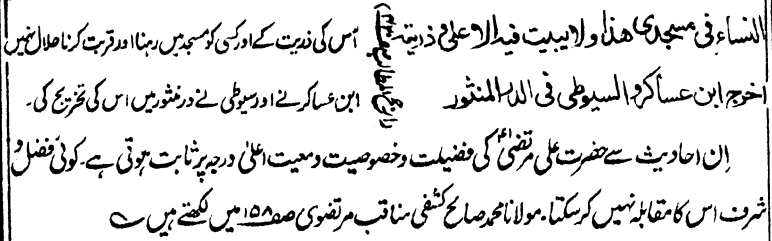 النساء فی مسجدی ھذا ولا یبیت فیہ الا علی و ذریتہ
اخرج ابن عساکر والسیوطی فی الدر المنثور
اُس کی ذریت کے اور کسی کو مسجد میں رہنا اور قربت کرنا حلال نہیں
ابن عساکر نے اور سیوطی نے در منثور میں اس کی تخریج کی۔
اِن احادیث سے حضرت علی مرتضیٰ کی فضیلت و خصوصیت و معیت اعلیٰ درجہ پر ثابت ہوتی ہے۔ کوئی فضل و
شرف اس کا مقابلہ نہیں کر سکتا۔ مولانا محمد صالح کشفی مناقب مرتضوی صفہ ۱۵۸ میں لکھتے ہیں